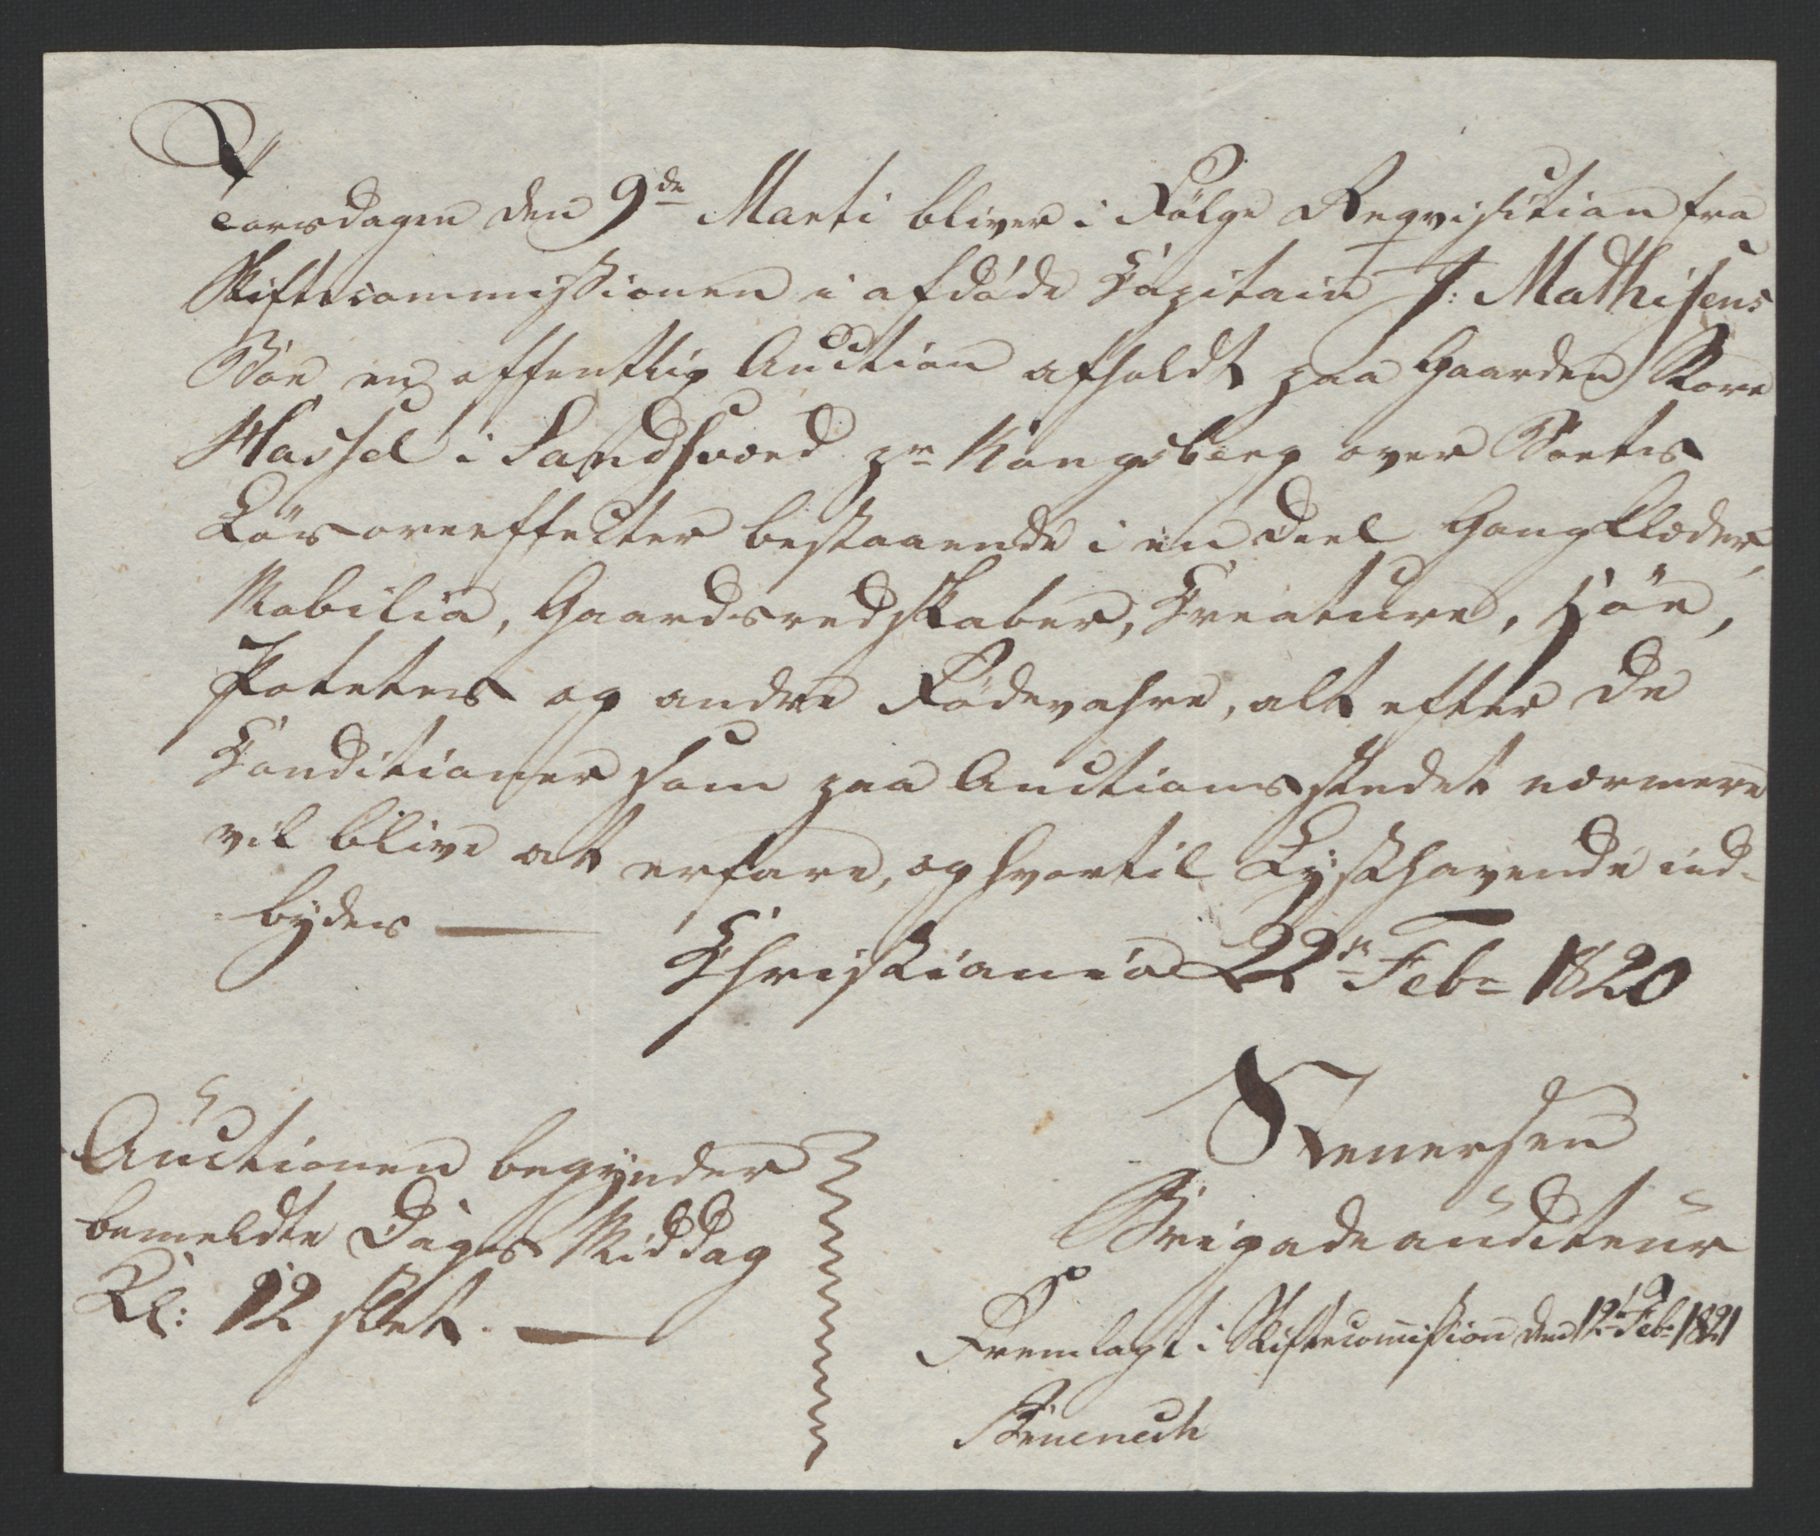 Torsdagen den 9de Marti bliver i Følge Reqvisition fra
Skiftecommissionen i afdøde Capitain J: Mathisens
Boe en offentlig Auction afholdt paa Gaarden Store
Hassel i Sandsværd pr Kongsberg over Boets
Løsøreeffecter bestaaende i en Deel Gangklæder,
Mobilia, Gaardsredskaber, Creature, Höe,
Poteter og andre Fødevahre, alt efter de
Conditioner som paa Auctionsstedet nærmere
vil blive at erfare, og hvortil Lysthavende ind-
bydes
Christiania 22de Febr 1820
Auctionen begynder
bemeldte Dags Middag
Kl: 12 slet.
Brigadeauditeur
Fremlagt i Skiftecommission den 12te Febr 1821